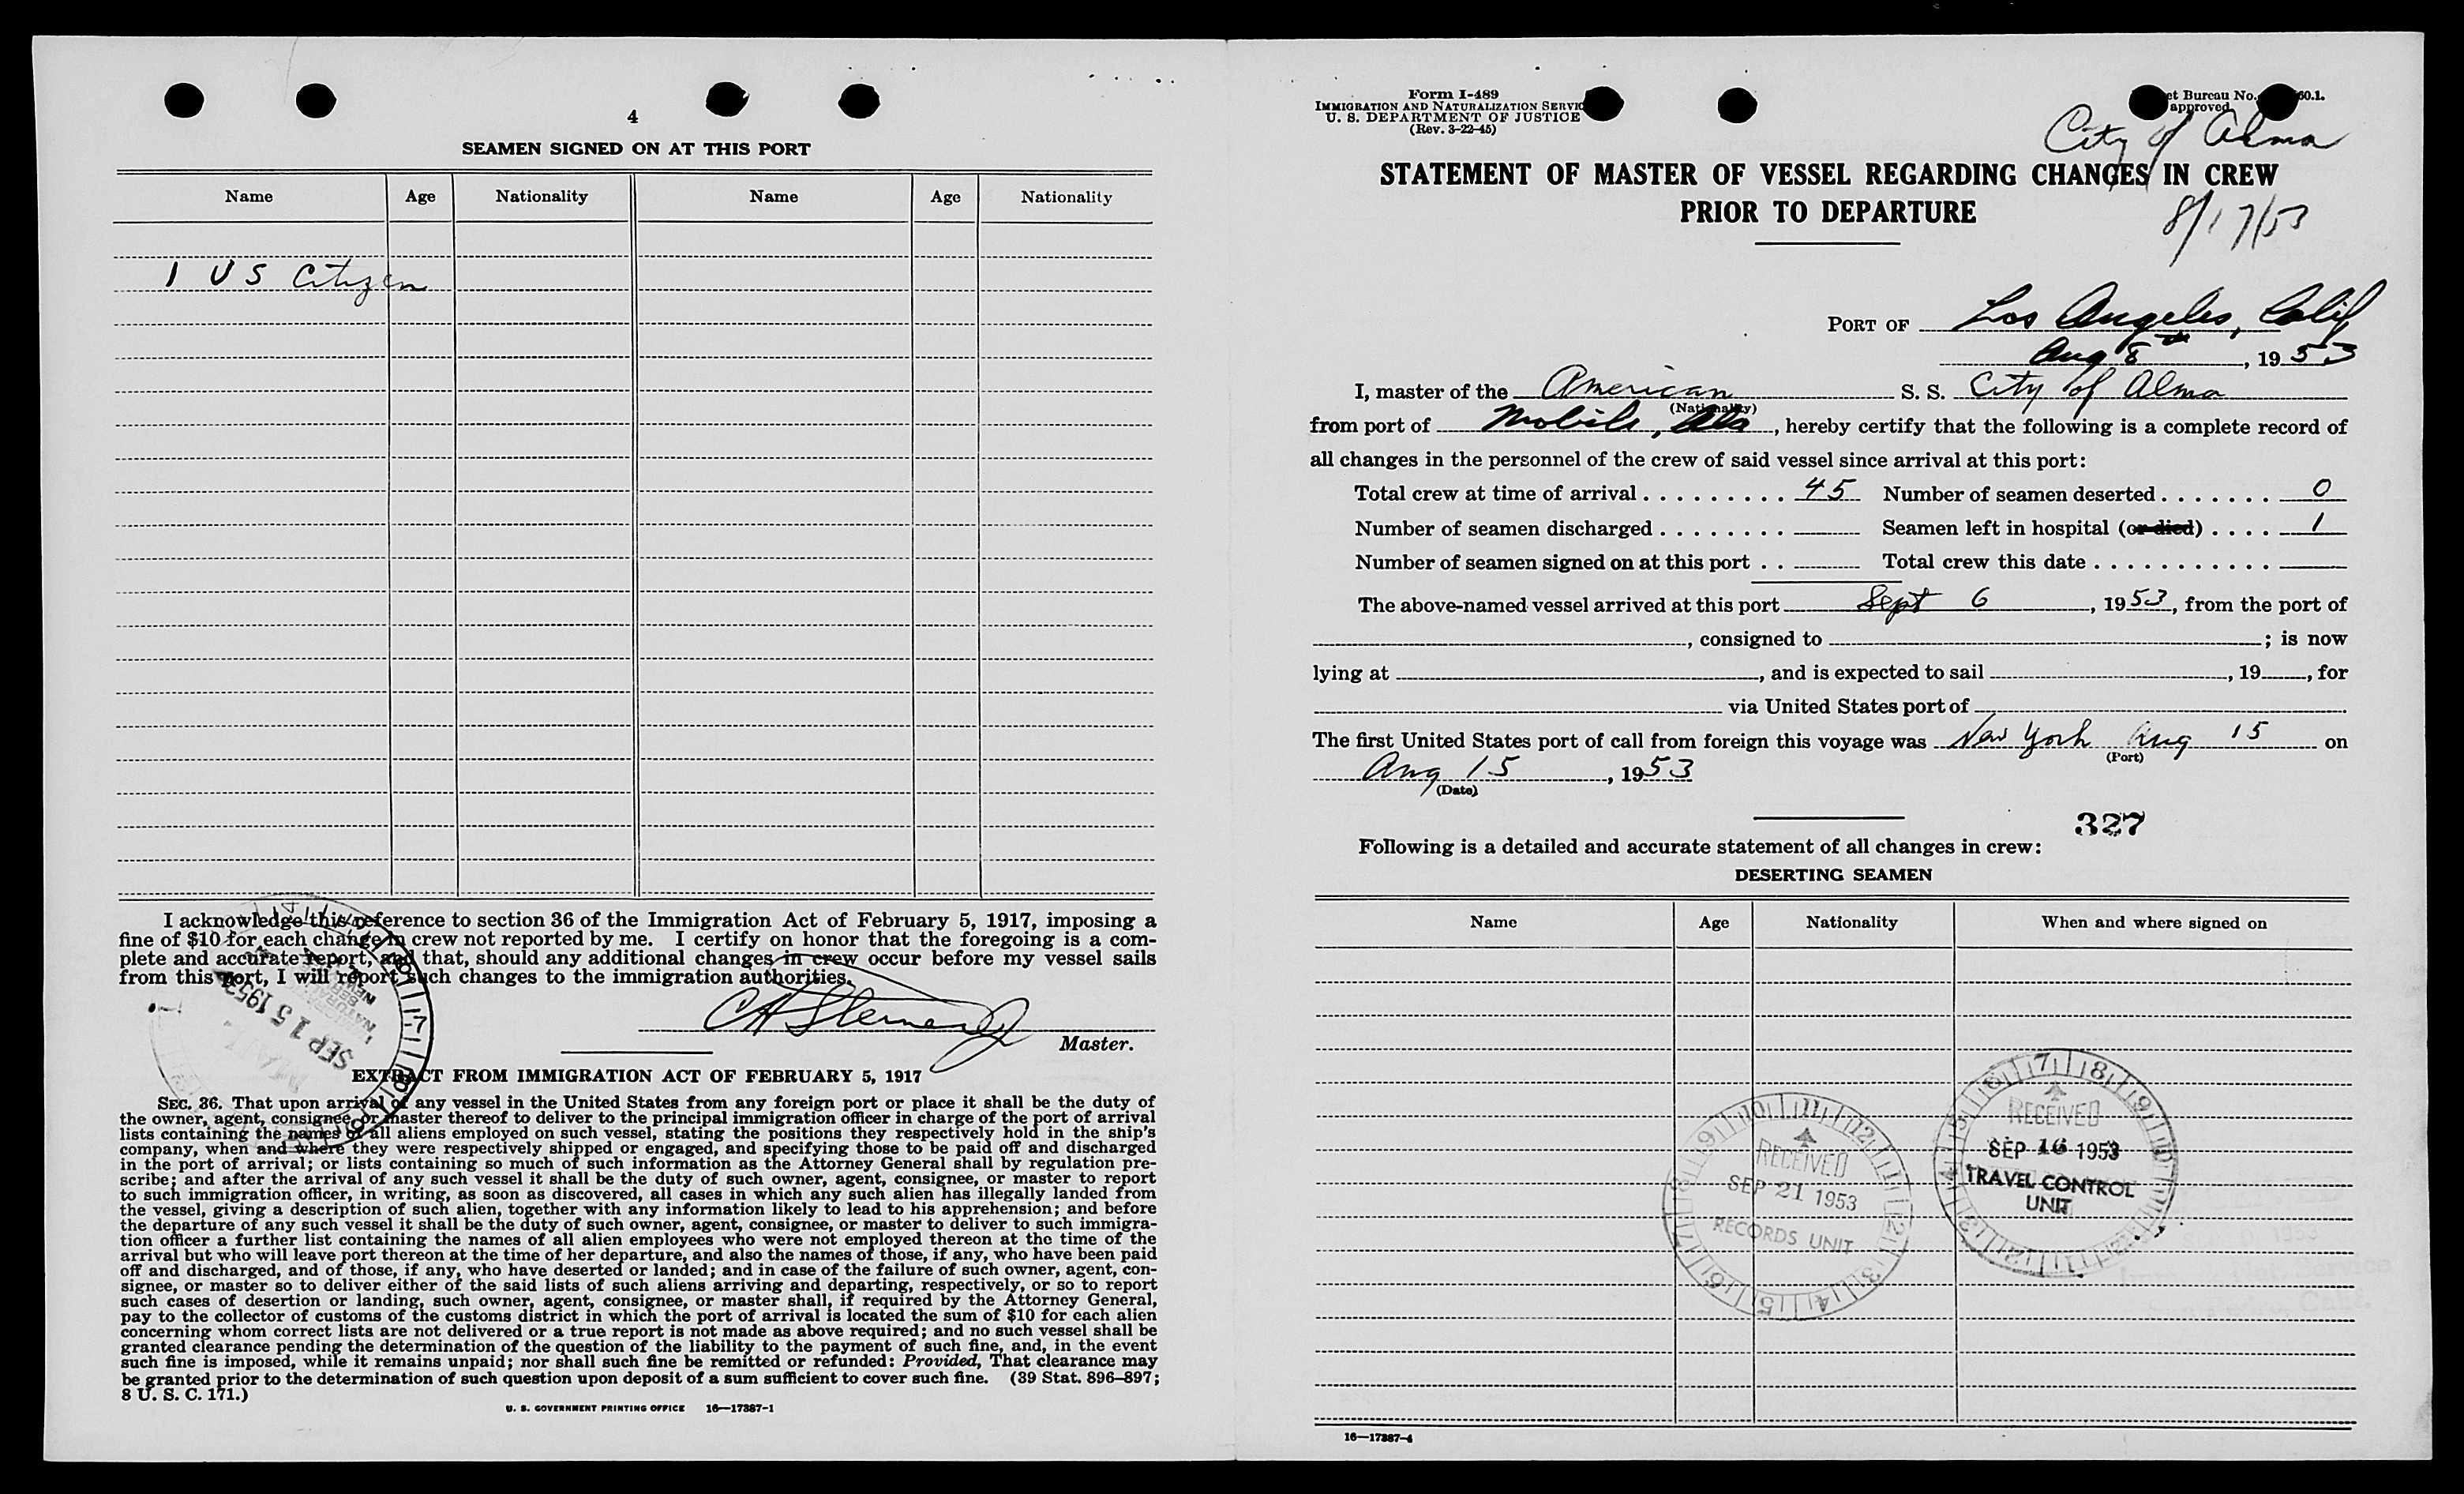 4
SEAMEN SIGNED ON AT THIS PORT
Name Age Nationality Name Age Nationality
1 US Citizen
I acknowledge this reference to section 36 of the Immigration Act of February 5, 1917, imposing a
fine of $10 for each change in crew not reported by me. I certify on honor that the foregoing is a com-
plete and accurate report, and that, should any additional changes in crew occur before my vessel sails
from this port, I will report such changes to the immigration authorities.
SEP 15 1953
Master.
EXTRACT FROM IMMIGRATION ACT OF FEBRUARY 5, 1917
SEC. 36. That upon arrival of any vessel in the United States from any foreign port or place it shall be the duty of
the owner, agent, consignee, or master thereof to deliver to the principal immigration officer in charge of the port of arrival
lists containing the names of all aliens employed on such vessel, stating the positions they respectively hold in the ship's
company, when and where they were respectively shipped or engaged, and specifying those to be paid off and discharged
in the port of arrival; or lists containing so much of such information as the Attorney General shall by regulation pre-
scribe; and after the arrival of any such vessel it shall be the duty of such owner, agent, consignee, or master to report
to such immigration officer, in writing, as soon as discovered, all cases in which any such alien has illegally landed from
the vessel, giving a description of such alien, together with any information likely to lead to his apprehension; and before
the departure of any such vessel it shall be the duty of such owner, agent, consignee, or master to deliver to such immigra-
tion officer a further list containing the names of all alien employees who were not employed thereon at the time of the
arrival but who will leave port thereon at the time of her departure, and also the names of those, if any, who have been paid
off and discharged, and of those, if any, who have deserted or landed; and in case of the failure of such owner, agent, con-
signee, or master so to deliver either of the said lists of such aliens arriving and departing, respectively, or so to report
such cases of desertion or landing, such owner, agent, consignee, or master shall, if required by the Attorney General,
pay to the collector of customs of the customs district in which the port of arrival is located the sum of $10 for each alien
concerning whom correct lists are not delivered or a true report is not made as above required; and no such vessel shall be
granted clearance pending the determination of the question of the liability to the payment of such fine, and, in the event
such fine is imposed, while it remains unpaid; nor shall such fine be remitted or refunded: Provided, That clearance may
be granted prior to the determination of such question upon deposit of a sum sufficient to cover such fine. (39 Stat. 896–897;
8 U. S. C. 171.)
U. S. GOVERNMENT PRINTING OFFICE 16—17387-1
Form I-489
IMMIGRATION AND NATURALIZATION SERVIC
U. S. DEPARTMENT OF JUSTICE
(Rev. 3-22-45)
et Bureau No. 60.1.
approved
City of Alma
STATEMENT OF MASTER OF VESSEL REGARDING CHANGES IN CREW
PRIOR TO DEPARTURE
8/17/53
PORT OF Los Angeles, Calif
Aug 8th, 1953
I, master of the American S. S. City of Alma
(Nationality)
from port of Mobile, Ala, hereby certify that the following is a complete record of
all changes in the personnel of the crew of said vessel since arrival at this port:
Total crew at time of arrival . . . . . . . . . 45 Number of seamen deserted . . . . . . . 0
Number of seamen discharged . . . . . . . . Seamen left in hospital (or died) . . . . 1
Number of seamen signed on at this port . . Total crew this date . . . . . . . . . . .
The above-named vessel arrived at this port Sept 6, 1953, from the port of
, consigned to ; is now
lying at , and is expected to sail , 19 , for
via United States port of .
The first United States port of call from foreign this voyage was New York Aug 15 on
(Port)
Aug 15, 1953
(Date)
327
Following is a detailed and accurate statement of all changes in crew:
DESERTING SEAMEN
Name Age Nationality When and where signed on
RECEIVED
SEP 16 1953
TRAVEL CONTROL
UNIT
RECEIVED
SEP 21 1953
RECORDS UNIT
16—17387-4